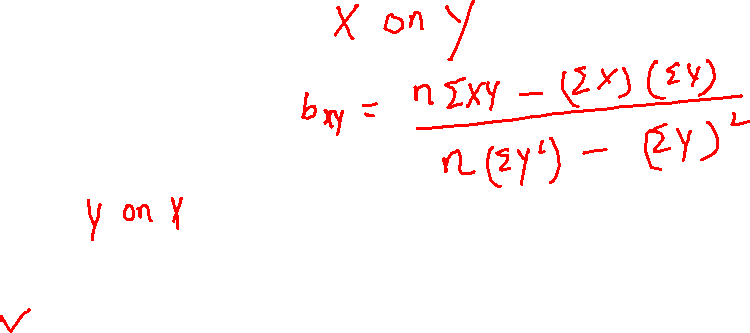 X on Y
b_xy = \frac{n ΣXY - (ΣX) (ΣY)}{n (ΣY²) - (ΣY)²}
y on y
✓